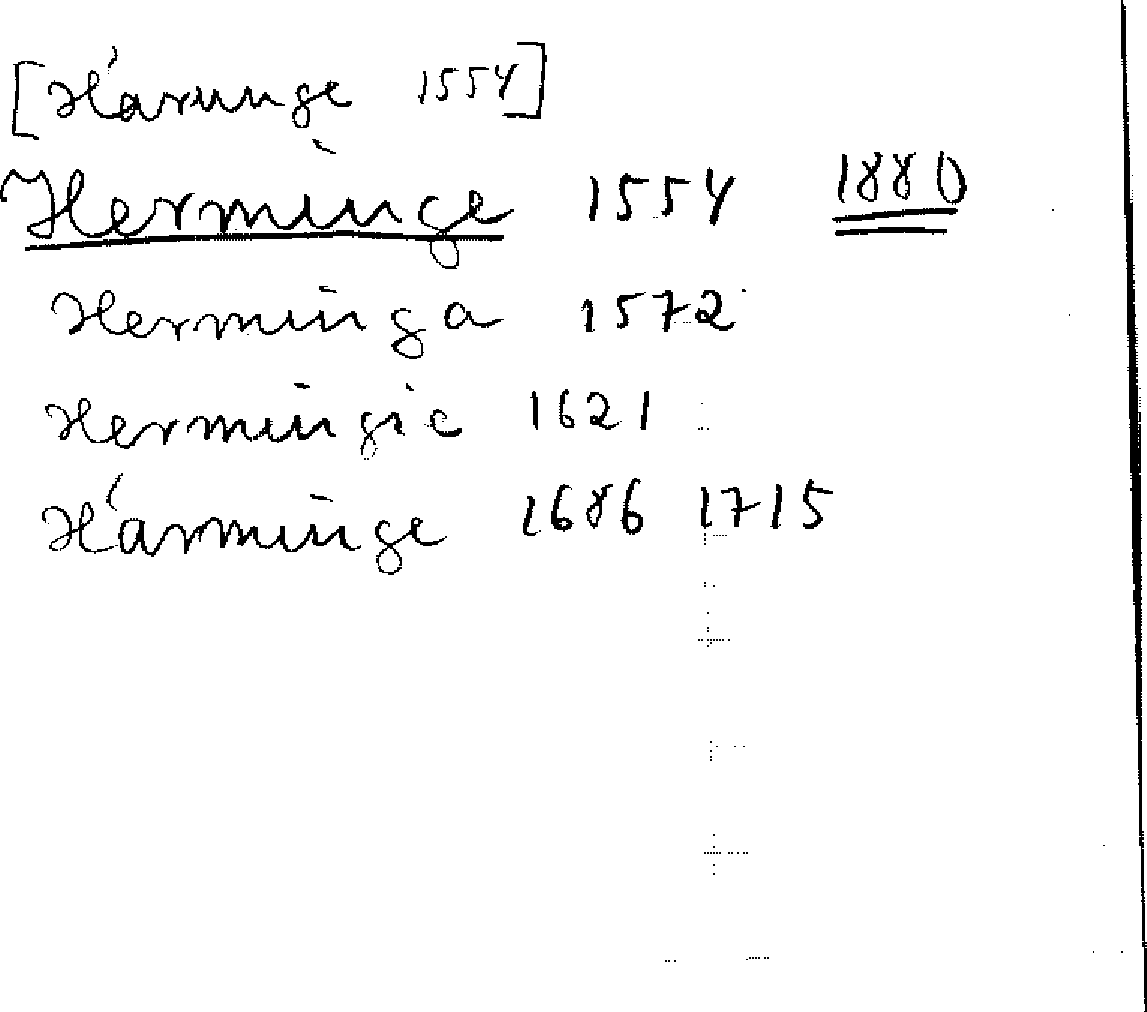 [Härunge 1554]
Herminge 1554 1880
Herminga 1572
Hermingie 1621
Härminge 1686 1715